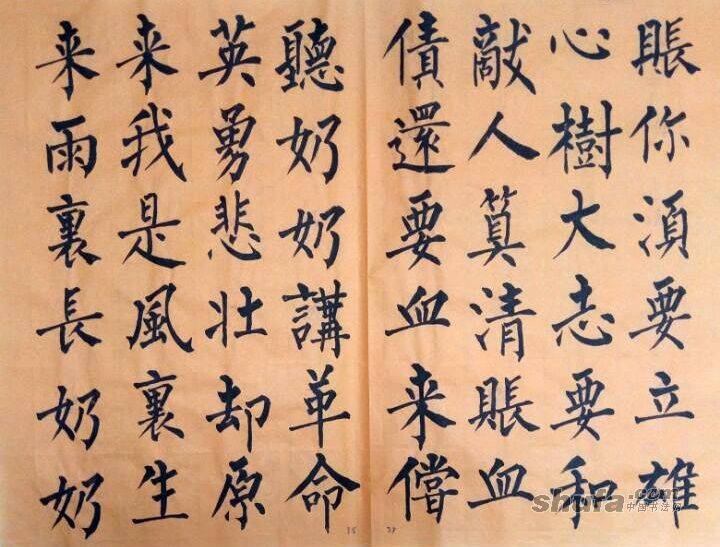 賬你須要立雄
心樹大志要和
敵人算清賬血
債還要血来償
聽奶奶講革命
英勇悲壮却原
来我是風裏生
来雨裏長奶奶
shufa.com
中国书法网